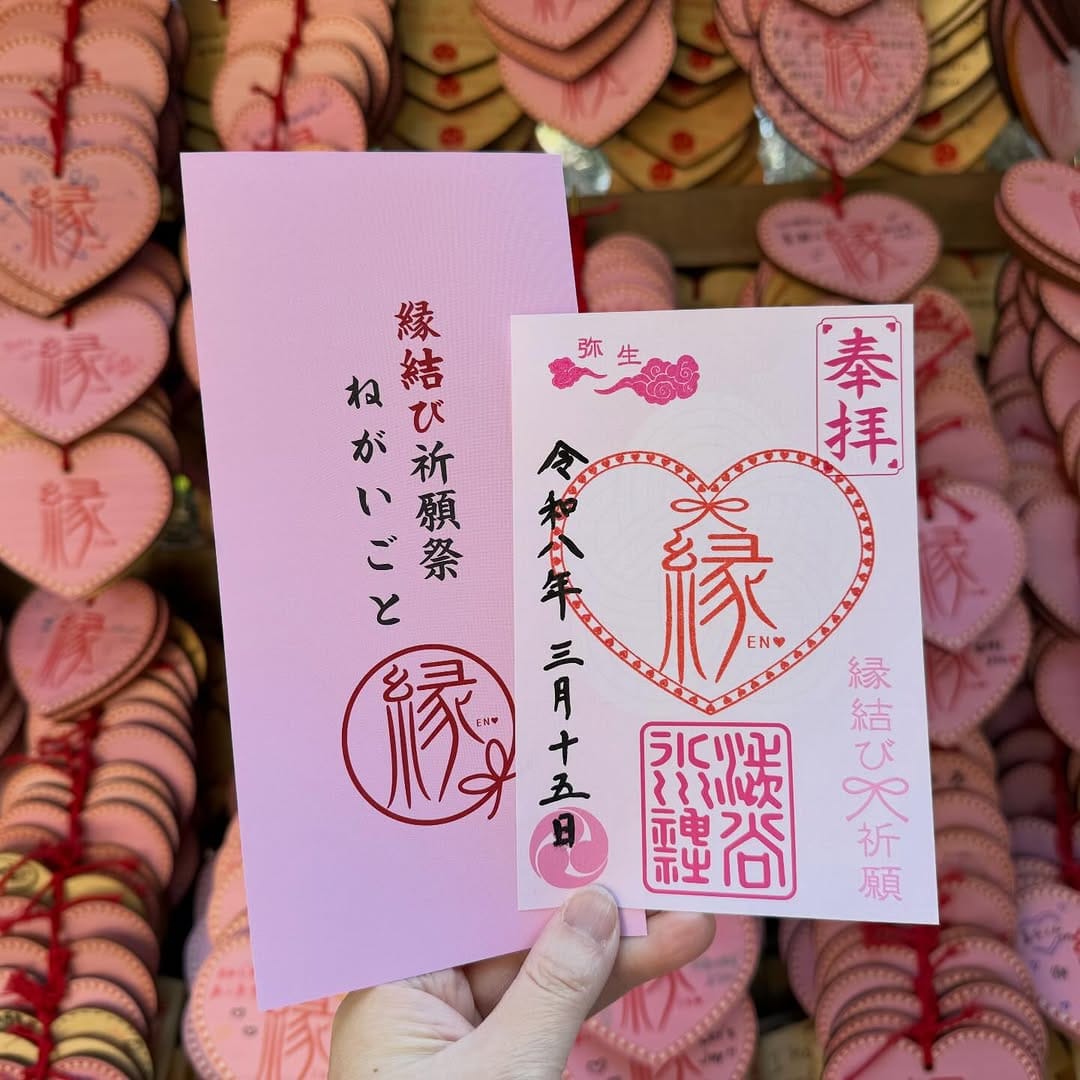 縁結び祈願祭
ねがいごと
縁
EN♥
奉拝
弥生
縁
EN♥
令和八年三月十五日
渋谷
氷川神社
縁結び祈願
縁
縁
縁
縁
縁
縁